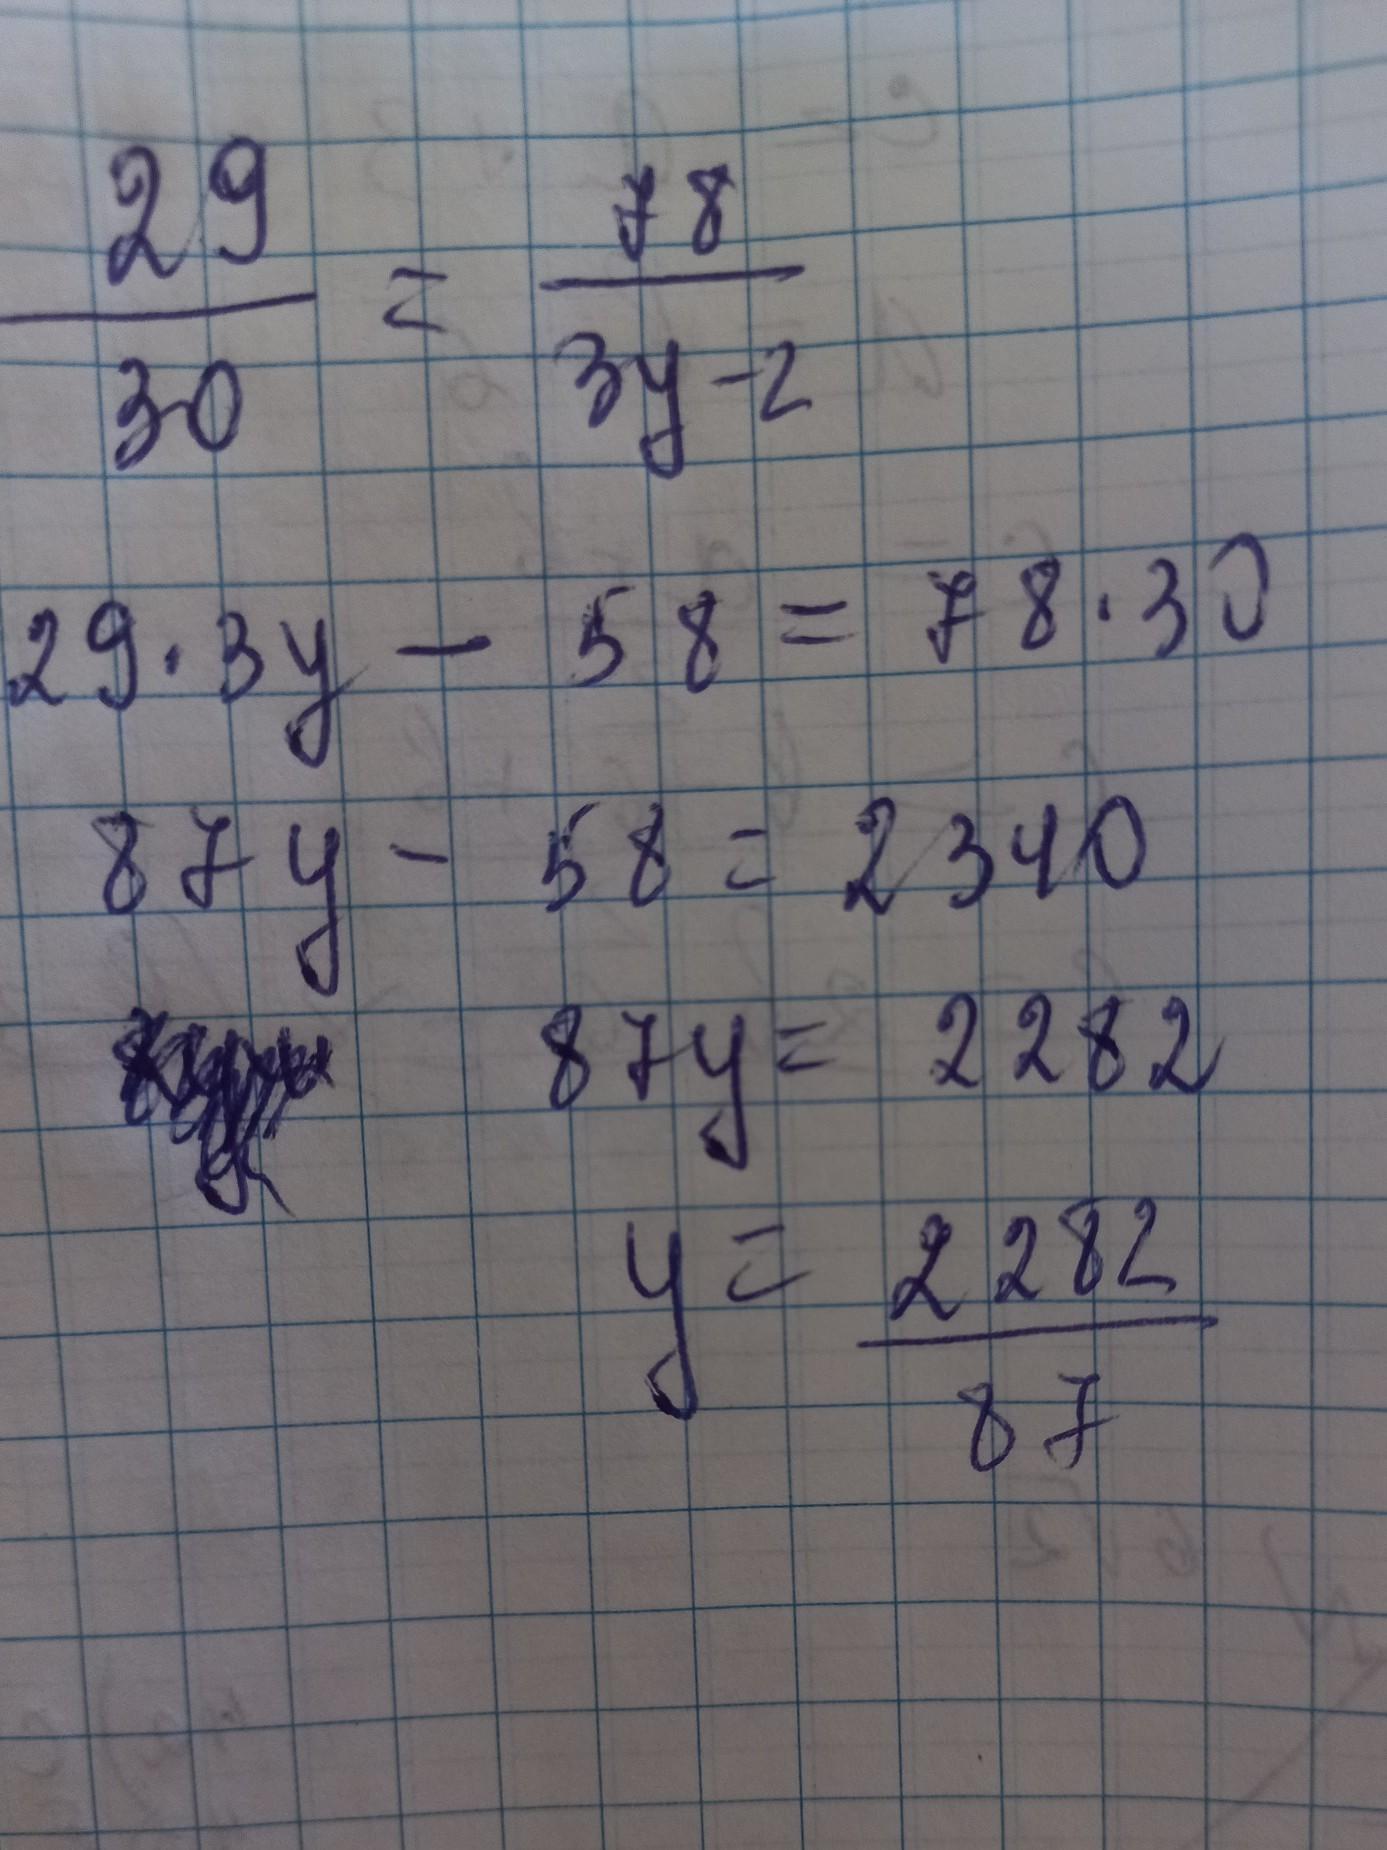 29/30 = 78/(3y-2)
29·3y - 58 = 78·30
87y - 58 = 2340
87y = 2282
y = 2282/87